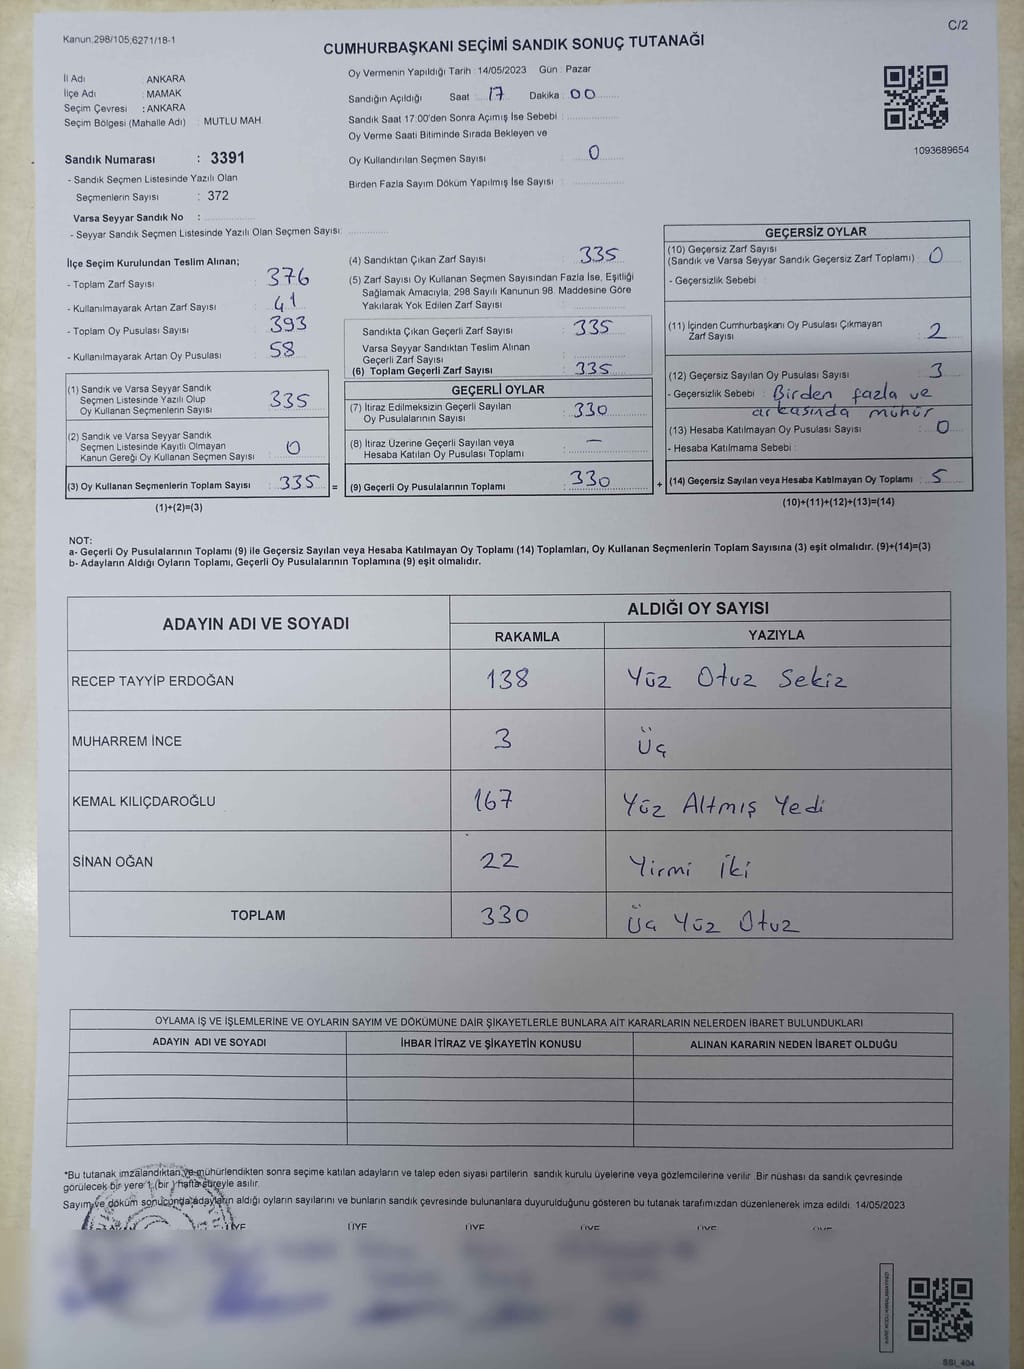 Kanun:298/105,6271/18-1
C/2
CUMHURBAŞKANI SEÇİMİ SANDIK SONUÇ TUTANAĞI
İl Adı : ANKARA
İlçe Adı : MAMAK
Seçim Çevresi : ANKARA
Seçim Bölgesi (Mahalle Adı) : MUTLU MAH.
Sandık Numarası : 3391
- Sandık Seçmen Listesinde Yazılı Olan
Seçmenlerin Sayısı : 372
Varsa Seyyar Sandık No :
- Seyyar Sandık Seçmen Listesinde Yazılı Olan Seçmen Sayısı:
Oy Vermenin Yapıldığı Tarih : 14/05/2023 Gün : Pazar
Sandığın Açıldığı Saat : 17 Dakika : 00
Sandık Saat 17:00'den Sonra Açımış İse Sebebi :
Oy Verme Saati Bitiminde Sırada Bekleyen ve
Oy Kullandırılan Seçmen Sayısı : 0
Birden Fazla Sayım Döküm Yapılmış İse Sayısı :
1093689654
İlçe Seçim Kurulundan Teslim Alınan;
- Toplam Zarf Sayısı : 376
- Kullanılmayarak Artan Zarf Sayısı : 41
- Toplam Oy Pusulası Sayısı : 393
- Kullanılmayarak Artan Oy Pusulası : 58
(1) Sandık ve Varsa Seyyar Sandık
Seçmen Listesinde Yazılı Olup
Oy Kullanan Seçmenlerin Sayısı : 335
(2) Sandık ve Varsa Seyyar Sandık
Seçmen Listesinde Kayıtlı Olmayan
Kanun Gereği Oy Kullanan Seçmen Sayısı : 0
(3) Oy Kullanan Seçmenlerin Toplam Sayısı : 335 =
(1)+(2)=(3)
(4) Sandıktan Çıkan Zarf Sayısı : 335
(5) Zarf Sayısı Oy Kullanan Seçmen Sayısından Fazla İse, Eşitliği
Sağlamak Amacıyla, 298 Sayılı Kanunun 98. Maddesine Göre
Yakılarak Yok Edilen Zarf Sayısı :
Sandıkta Çıkan Geçerli Zarf Sayısı : 335
Varsa Seyyar Sandıktan Teslim Alınan
Geçerli Zarf Sayısı :
(6) Toplam Geçerli Zarf Sayısı : 335
GEÇERLİ OYLAR
(7) İtiraz Edilmeksizin Geçerli Sayılan
Oy Pusulalarının Sayısı : 330
(8) İtiraz Üzerine Geçerli Sayılan veya
Hesaba Katılan Oy Pusulası Toplamı : —
(9) Geçerli Oy Pusulalarının Toplamı : 330 +
GEÇERSİZ OYLAR
(10) Geçersiz Zarf Sayısı
(Sandık ve Varsa Seyyar Sandık Geçersiz Zarf Toplamı) : 0
- Geçersizlik Sebebi :
(11) İçinden Cumhurbaşkanı Oy Pusulası Çıkmayan
Zarf Sayısı : 2
(12) Geçersiz Sayılan Oy Pusulası Sayısı : 3
- Geçersizlik Sebebi : Birden fazla ve
arkasında mühür
(13) Hesaba Katılmayan Oy Pusulası Sayısı : 0
- Hesaba Katılmama Sebebi :
(14) Geçersiz Sayılan veya Hesaba Katılmayan Oy Toplamı : 5
(10)+(11)+(12)+(13)=(14)
NOT:
a- Geçerli Oy Pusulalarının Toplamı (9) ile Geçersiz Sayılan veya Hesaba Katılmayan Oy Toplamı (14) Toplamları, Oy Kullanan Seçmenlerin Toplam Sayısına (3) eşit olmalıdır. (9)+(14)=(3)
b- Adayların Aldığı Oyların Toplamı, Geçerli Oy Pusulalarının Toplamına (9) eşit olmalıdır.
ADAYIN ADI VE SOYADI
ALDIĞI OY SAYISI
RAKAMLA YAZIYLA
RECEP TAYYİP ERDOĞAN 138 Yüz Otuz Sekiz
MUHARREM İNCE 3 Üç
KEMAL KILIÇDAROĞLU 167 Yüz Altmış Yedi
SİNAN OĞAN 22 Yirmi İki
TOPLAM 330 Üç Yüz Otuz
OYLAMA İŞ VE İŞLEMLERİNE VE OYLARIN SAYIM VE DÖKÜMÜNE DAİR ŞİKAYETLERLE BUNLARA AİT KARARLARIN NELERDEN İBARET BULUNDUKLARI
ADAYIN ADI VE SOYADI İHBAR İTİRAZ VE ŞİKAYETİN KONUSU ALINAN KARARIN NEDEN İBARET OLDUĞU
*Bu tutanak imzalandıktan ve mühürlendikten sonra seçime katılan adayların ve talep eden siyasi partilerin sandık kurulu üyelerine veya gözlemcilerine verilir. Bir nüshası da sandık çevresinde
görülecek bir yere 1 (bir) hafta süreyle asılır.
Sayım ve döküm sonucunda adayların aldığı oyların sayılarını ve bunların sandık çevresinde bulunanlara duyurulduğunu gösteren bu tutanak tarafımızdan düzenlenerek imza edildi. 14/05/2023
ÜYE ÜYE ÜYE ÜYE ÜYE
SSI_404